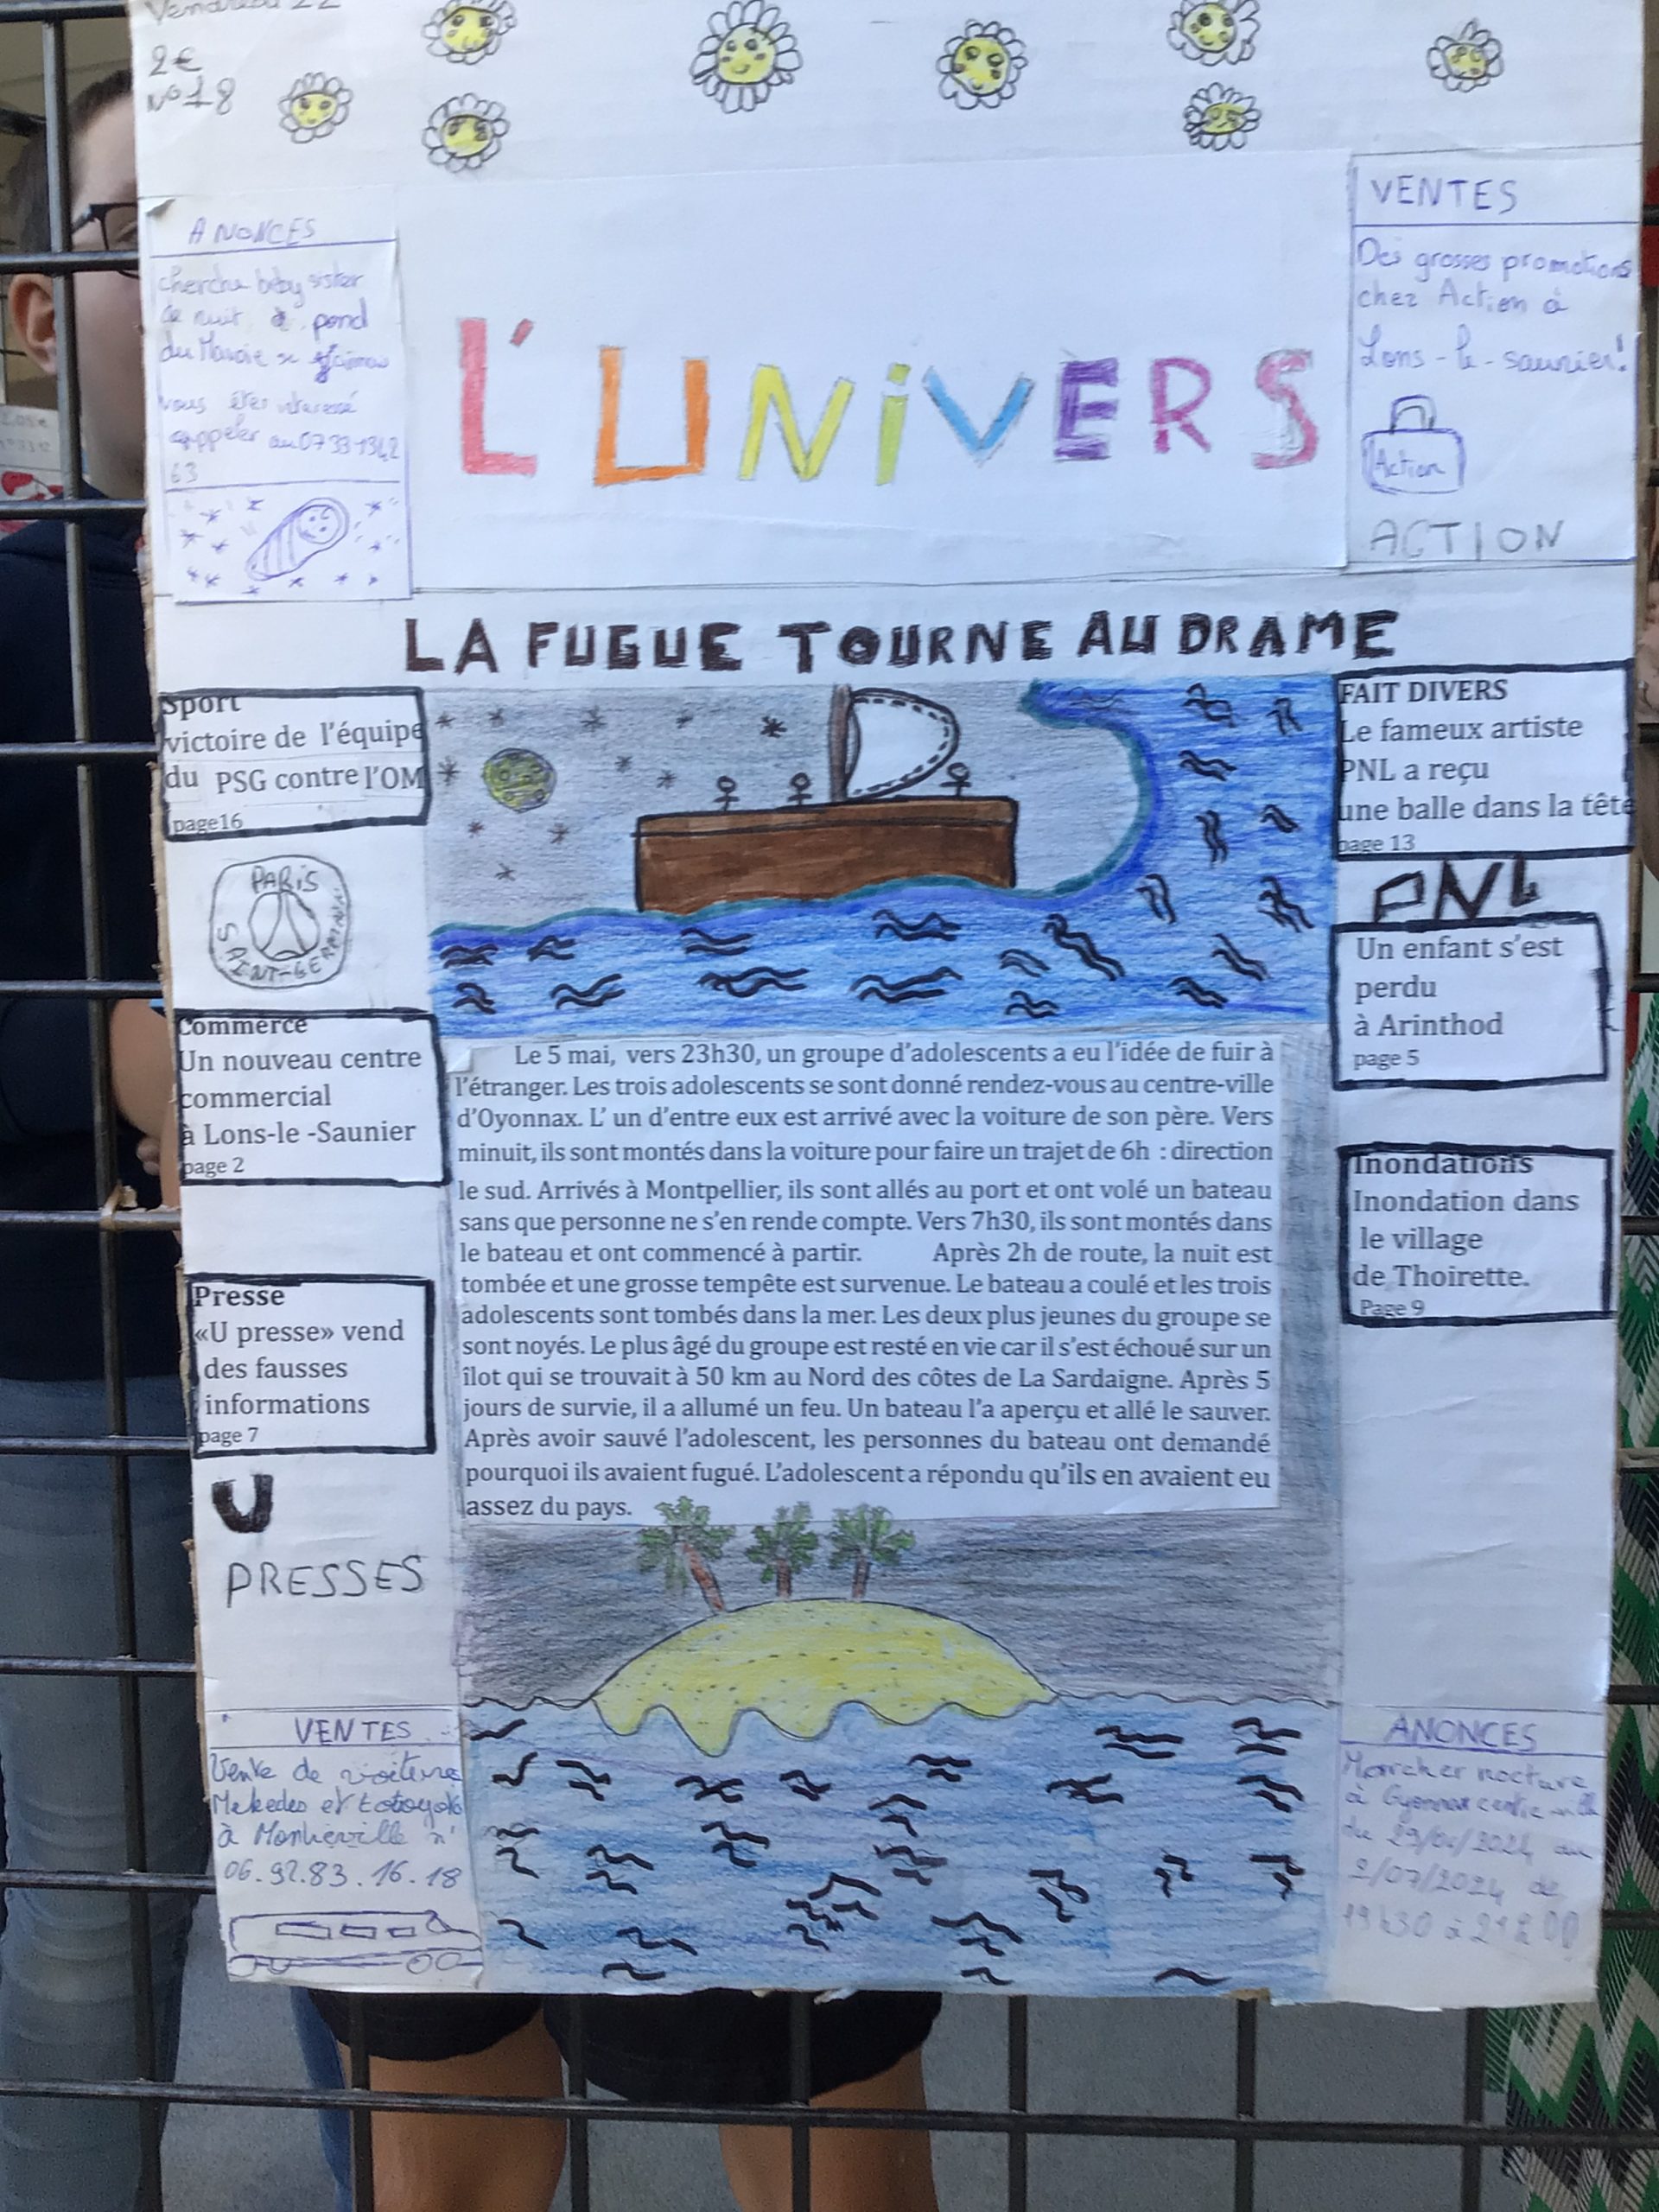 Vendredi 22
2€
N°18
ANONCES
cherche baby sister
de nuit à pond
du Navoie se
vous êtes interessé
appeler au 07 33 1342
63
L'UNIVERS
VENTES
Des grosses promotions
chez Action à
Lons-le-saunier!
Action
ACTION
LA FUGUE TOURNE AU DRAME
Sport
victoire de l'équipe
du PSG contre l'OM
page16
PARIS
SAINT-GERMAIN
Commerce
Un nouveau centre
commercial
à Lons-le -Saunier
page 2
Presse
«U presse» vend
des fausses
informations
page 7
U
PRESSES
VENTES
Vente de voitures
Mekedes et
à
06.92.83.16.18
Le 5 mai, vers 23h30, un groupe d'adolescents a eu l'idée de fuir à
l'étranger. Les trois adolescents se sont donné rendez-vous au centre-ville
d'Oyonnax. L' un d'entre eux est arrivé avec la voiture de son père. Vers
minuit, ils sont montés dans la voiture pour faire un trajet de 6h : direction
le sud. Arrivés à Montpellier, ils sont allés au port et ont volé un bateau
sans que personne ne s'en rende compte. Vers 7h30, ils sont montés dans
le bateau et ont commencé à partir. Après 2h de route, la nuit est
tombée et une grosse tempête est survenue. Le bateau a coulé et les trois
adolescents sont tombés dans la mer. Les deux plus jeunes du groupe se
sont noyés. Le plus âgé du groupe est resté en vie car il s'est échoué sur un
îlot qui se trouvait à 50 km au Nord des côtes de La Sardaigne. Après 5
jours de survie, il a allumé un feu. Un bateau l'a aperçu et allé le sauver.
Après avoir sauvé l'adolescent, les personnes du bateau ont demandé
pourquoi ils avaient fugué. L'adolescent a répondu qu'ils en avaient eu
assez du pays.
FAIT DIVERS
Le fameux artiste
PNL a reçu
une balle dans la tête
page 13
PNL
Un enfant s'est
perdu
à Arinthod
page 5
Inondations
Inondation dans
le village
de Thoirette.
Page 9
ANONCES
Marcher nocture
à Oyonnax centre-ville
du 29/06/2024 au
2/07/2024 de
19h30 à 21h00